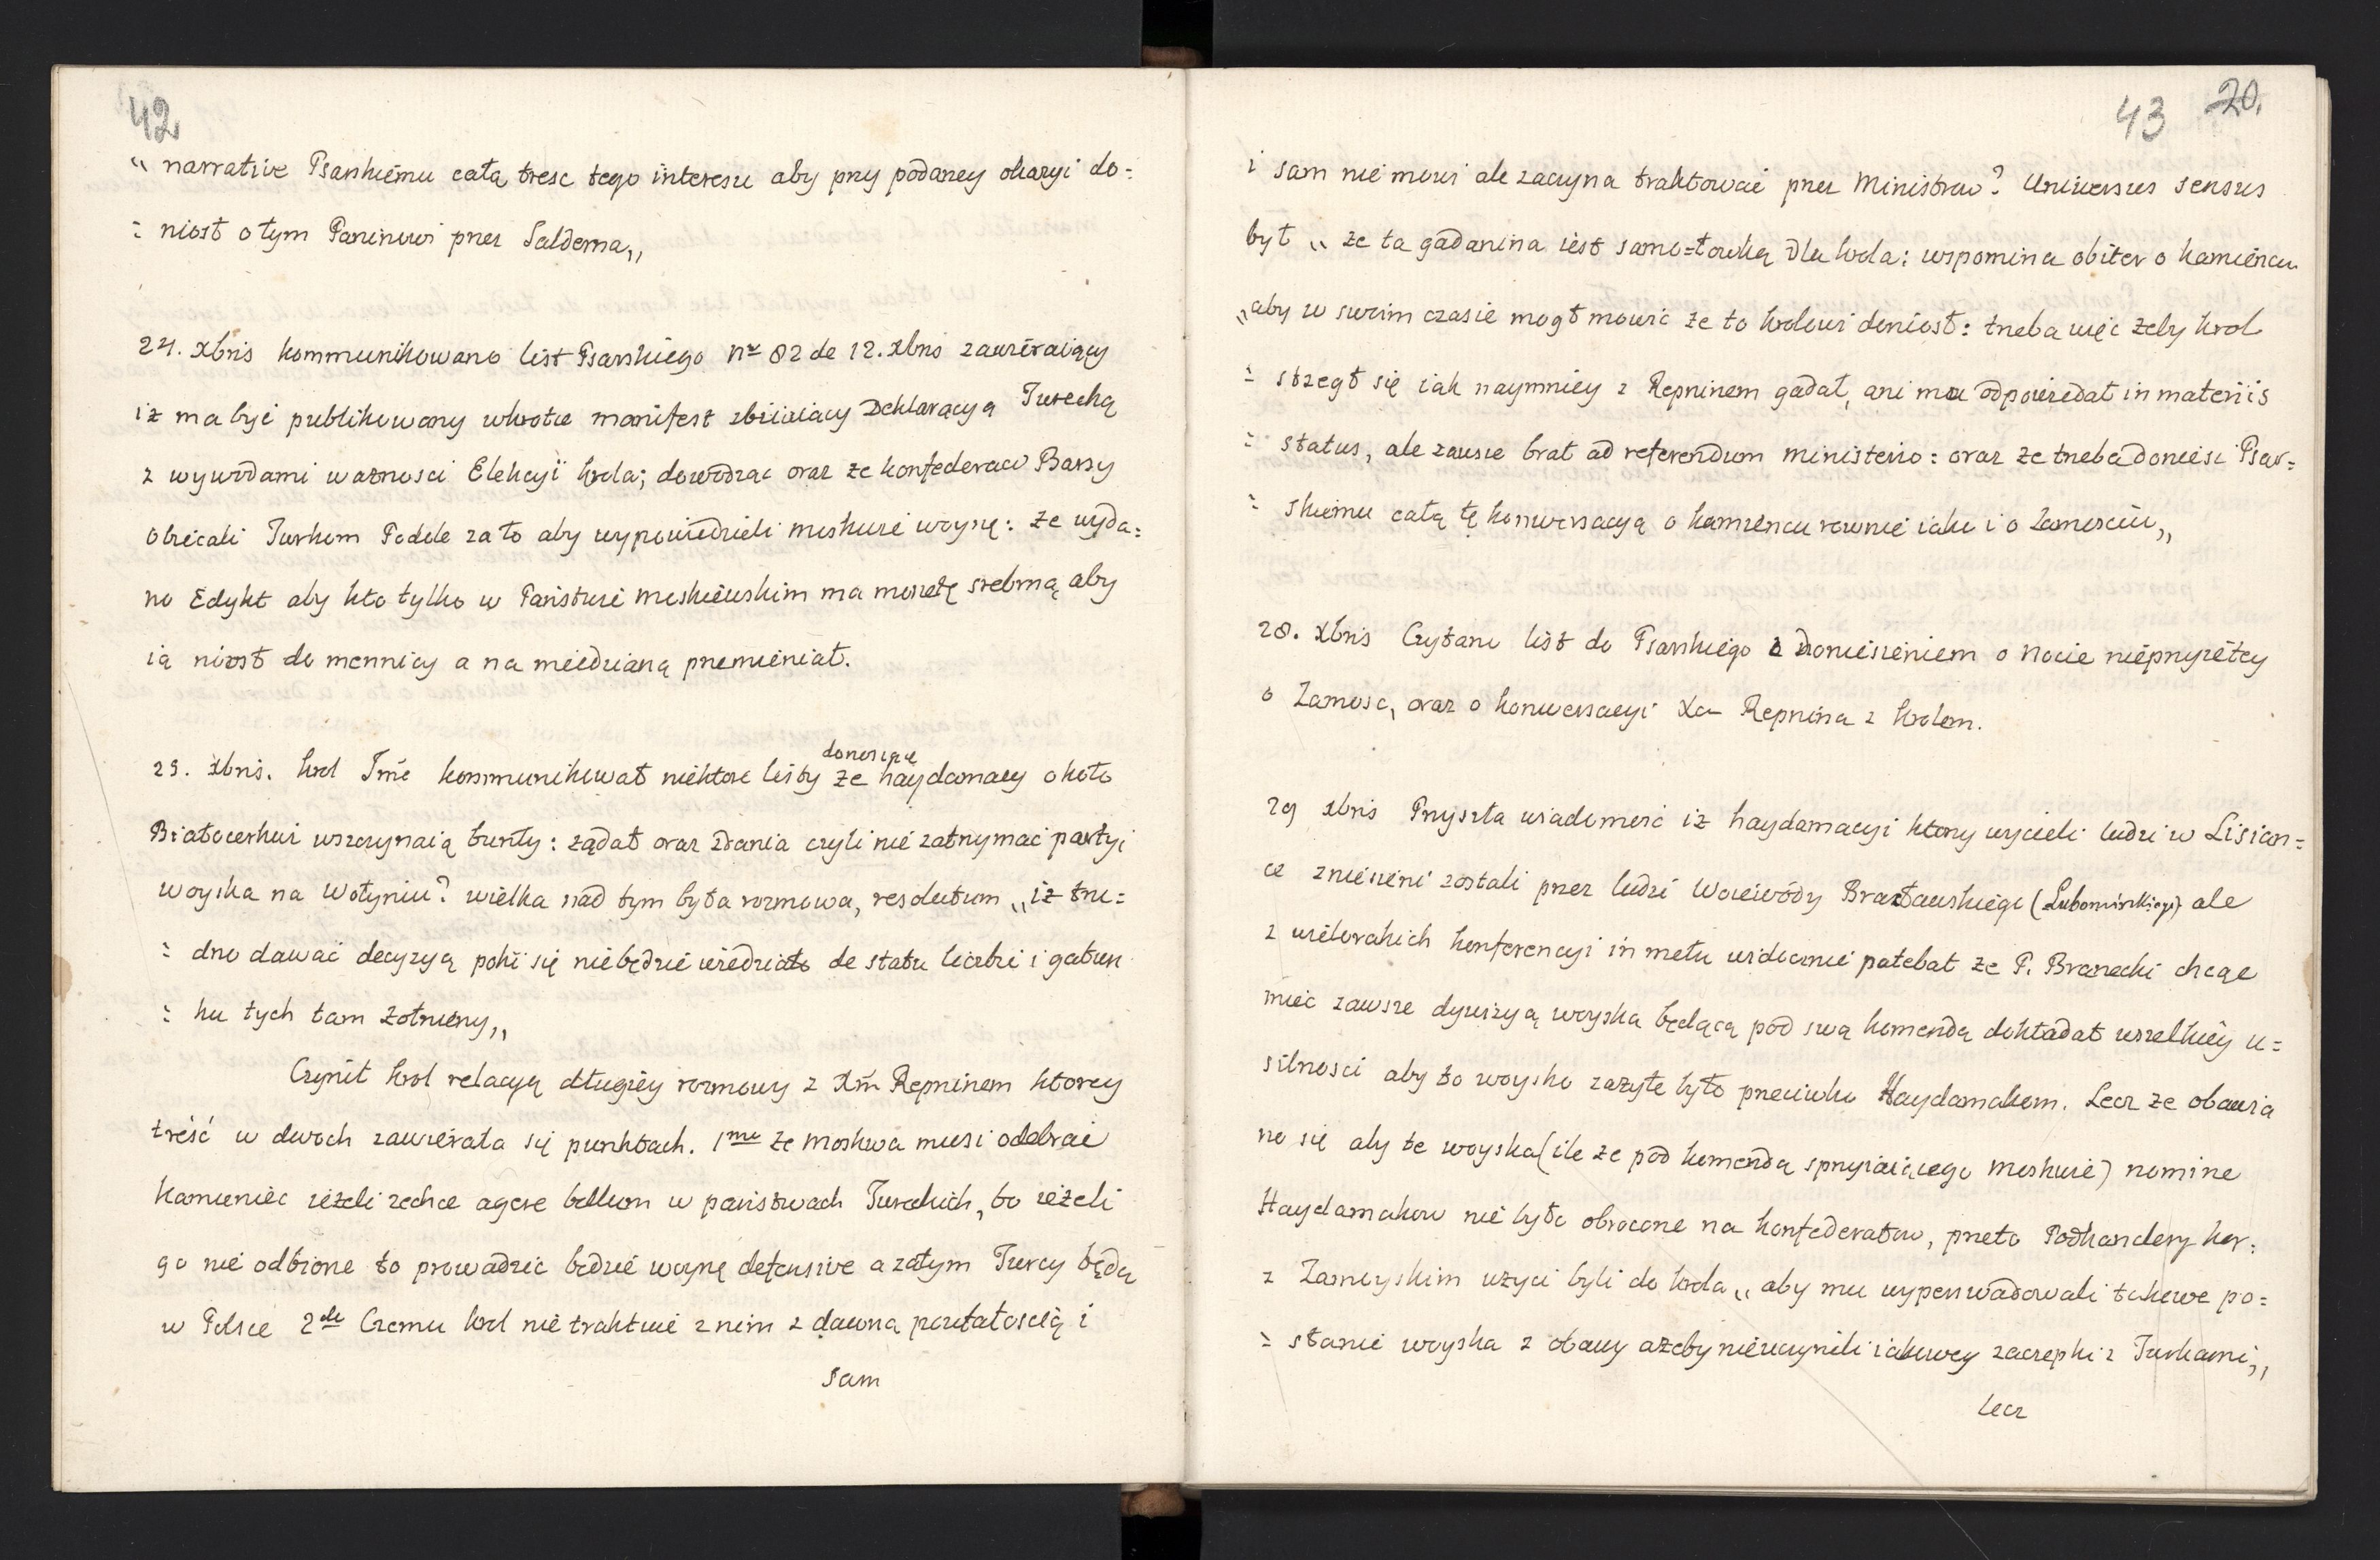 42
„ narrative Psarskiemu całą tresc tego interesu aby przy podaney okazyi do=
= niosł o tym Paninowi przez Salderna„
24. Xbris kommunikowano list Psarskiego Nr 82 de 12. Xbris zawieraiący
iz ma być publikowany wkrotce manifest zbiiaiacy Deklaracyą Turecką
z wywodami waznosci Elekcyi krola; dowodząc oraz ze konfederaci Barscy
obiecali Turkom Podole za to aby wypowiedzieli moskwie woynę: ze wyda=
no Edykt aby kto tylko w Państwie moskiewskim ma monetę srebrną aby
ią niosł do mennicy a na miedzianą przemieniał.
25. Xbris. krol Jmć kommunikował niektore listy donosząc ze haydamacy około
Białocerkwi wszczynaią bunty: ządał oraz zdania czyli nie zatrzymać partyi
woyska na Wołyniu? wielka nad tym była rozmowa, resolutum „iz tru=
= dno dawać decyzyą poki się niebędzie wiedziało de statu liczbie i gatun
= ku tych tam żołnierzy„
Czynił krol relacyą długiey rozmowy z Xm Repninem ktorey
treść w dwoch zawierała się punktach. 1mo ze moskwa musi odebrać
Kamieniec ieżeli zechce agere bellum w państwach Tureckich, bo ieżeli
go nie odbione to prowadzic bedzie woynę defensive a zatym Turcy będą
w Polsce 2do Czemu krol nie traktuie z nim z dawną poufałoscią i
sam
43 20.
i sam nie mowi ale zaczyna traktować przez Ministrow? Universus sensus
był „ ze ta gadanina iest samo=łowką dla krola: wspomina obiter o kamiencu
„aby w swoim czasie mogł mowić ze to krolowi doniosł: trzeba więc zeby krol
= strzegł się iak naymniey z Repninem gadał, ani mu odpowiedał in materiis
= status, ale zawsze brał ad referendum ministerio: oraz ze trzeba doniesc Psar=
= skiemu całą tę konwersacyą o kamiencu rownie iako i o Zamosciu„
28. Xbris Czytano list do Psarskiego z doniesieniem o Nocie nieprzyiętey
o Zamosc, oraz o konwersacyi Xa Repnina z krolem.
29 Xbris Przyszła wiadomosć iz haydamacyi ktorzy wycieli ludzi w Lisian=
ce zniesieni zostali przez ludzi Woiewody Bracławskiego (Lubomirskiego) ale
z wielorakich konferencyi in metu widocznie patebat ze P. Branecki chcąc
mieć zawsze dywizyą woyska będącą pod swą komendą dokładał wszelkiey u=
silnosci aby to woysko zażyte było przeciwko Haydamakom. Lecz ze obawia
no się aby te woyska (ile ze pod komendą sprzyiaiącego moskwie) nomine
Haydamakow nie było obrocone na konfederatow, przeto Podkanclerzy kor=
z Zamoyskim uzyci byli do krola „ aby mu wyperswadowali takowe po=
= słanie woyska z obawy azeby nieuczynili iakowey zaczepki z Turkami„
lecz